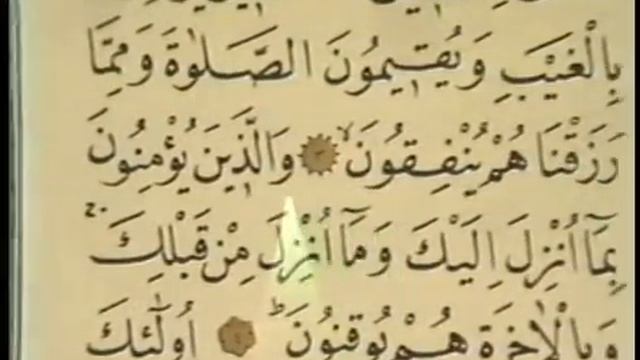 بِالْغَيْبِ وَيُقِيمُونَ الصَّلٰوةَ وَمِمَّا
رَزَقْنَا هُمْ يُنْفِقُونَۙ وَالَّذِينَ يُؤْمِنُونَ
بِمَٓا اُنْزِلَ اِلَيْكَ وَمَٓا اُنْزِلَ مِنْ قَبْلِكَۚ
وَبِالْاٰخِرَةِ هُمْ يُوقِنُونَۜ اُولٰٓئِكَ